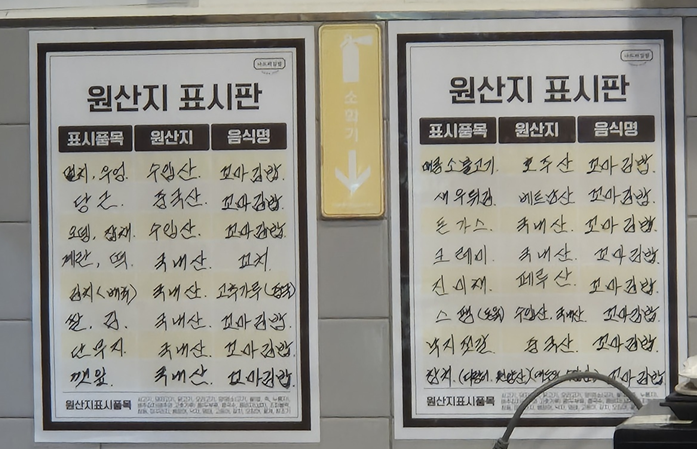 원산지 표시판
표시품목 원산지 음식명
멸치, 우엉 수입산. 꼬마김밥.
당근. 중국산. 꼬마김밥.
오뎅, 잡채. 수입산. 꼬마김밥.
계란, 떡 국내산. 꼬치.
김치(배추) 국내산. 고추가루(중국)
쌀, 김. 국내산. 꼬마김밥.
단무지. 국내산. 꼬마김밥.
깻잎 국내산. 꼬마김밥.
원산지표시품목
소화기
원산지 표시판
표시품목 원산지 음식명
매콤소불고기 호주산 꼬마김밥.
새우튀김 베트남산 꼬마김밥.
돈가스. 국내산. 꼬마김밥.
크래미. 국내산. 꼬마김밥.
진미채. 페루산. 꼬마김밥.
스팸 수입산, 국내산 꼬마김밥.
낙지젓갈. 중국산. 꼬마김밥.
참치. 꼬마김밥.
원산지표시품목